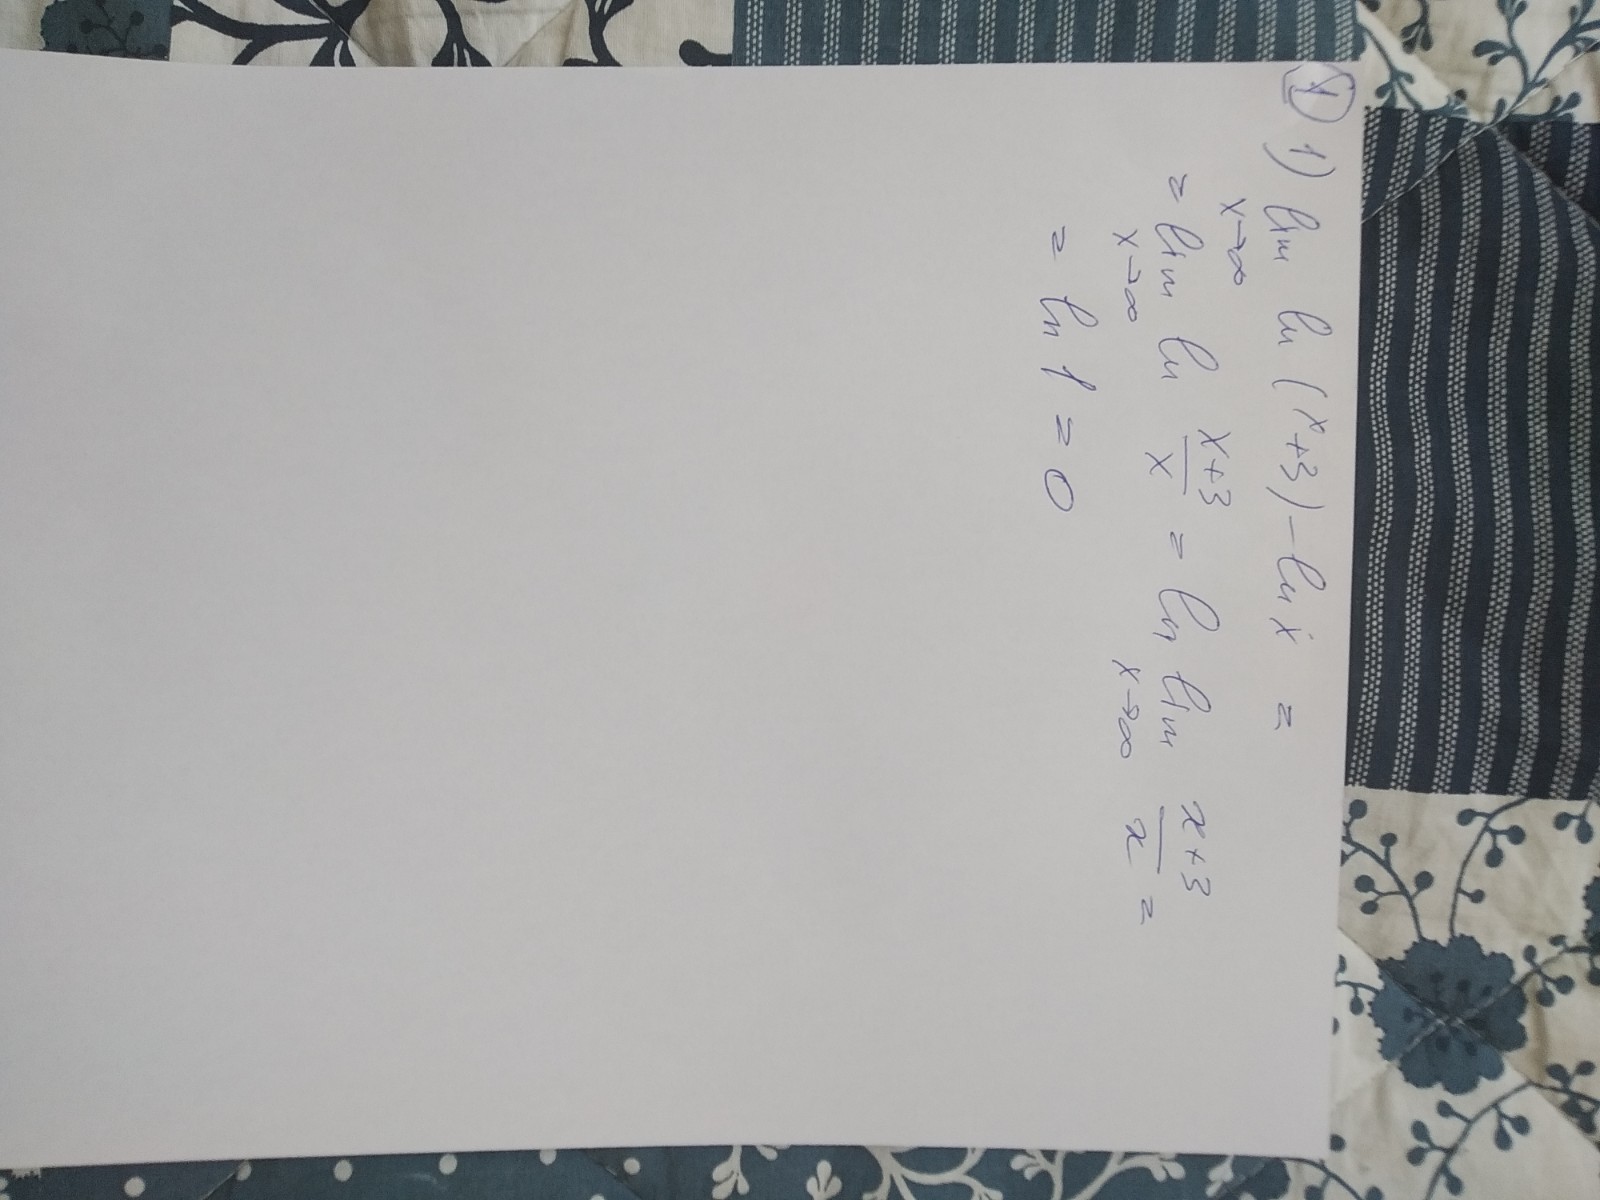 ① 1) lim ln (x+3) - ln x =
x→∞
= lim ln x+3/x = ln lim x+3/x =
x→∞ x→∞
= ln 1 = 0